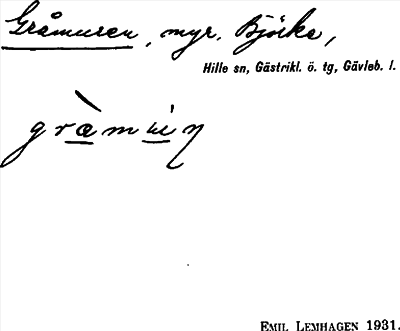 Gråmuren, myr. Björke,
Hille sn, Gästrikl. ö. tg, Gävleb. l.
EMIL LEMHAGEN 1931.